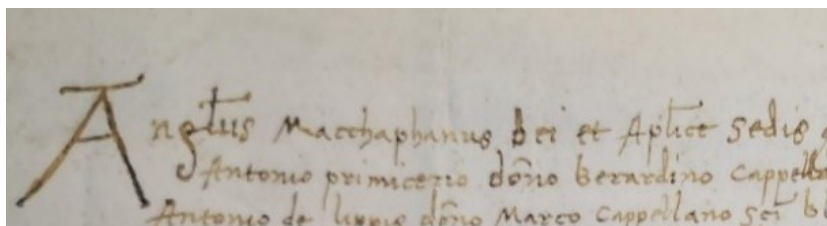 Angl̄us Macchaphanus dei et Apl̄ice Sedis
Antonio primicerio dōno berardino Cappella
Antonio de lippis dōno Marco Cappellano Scī